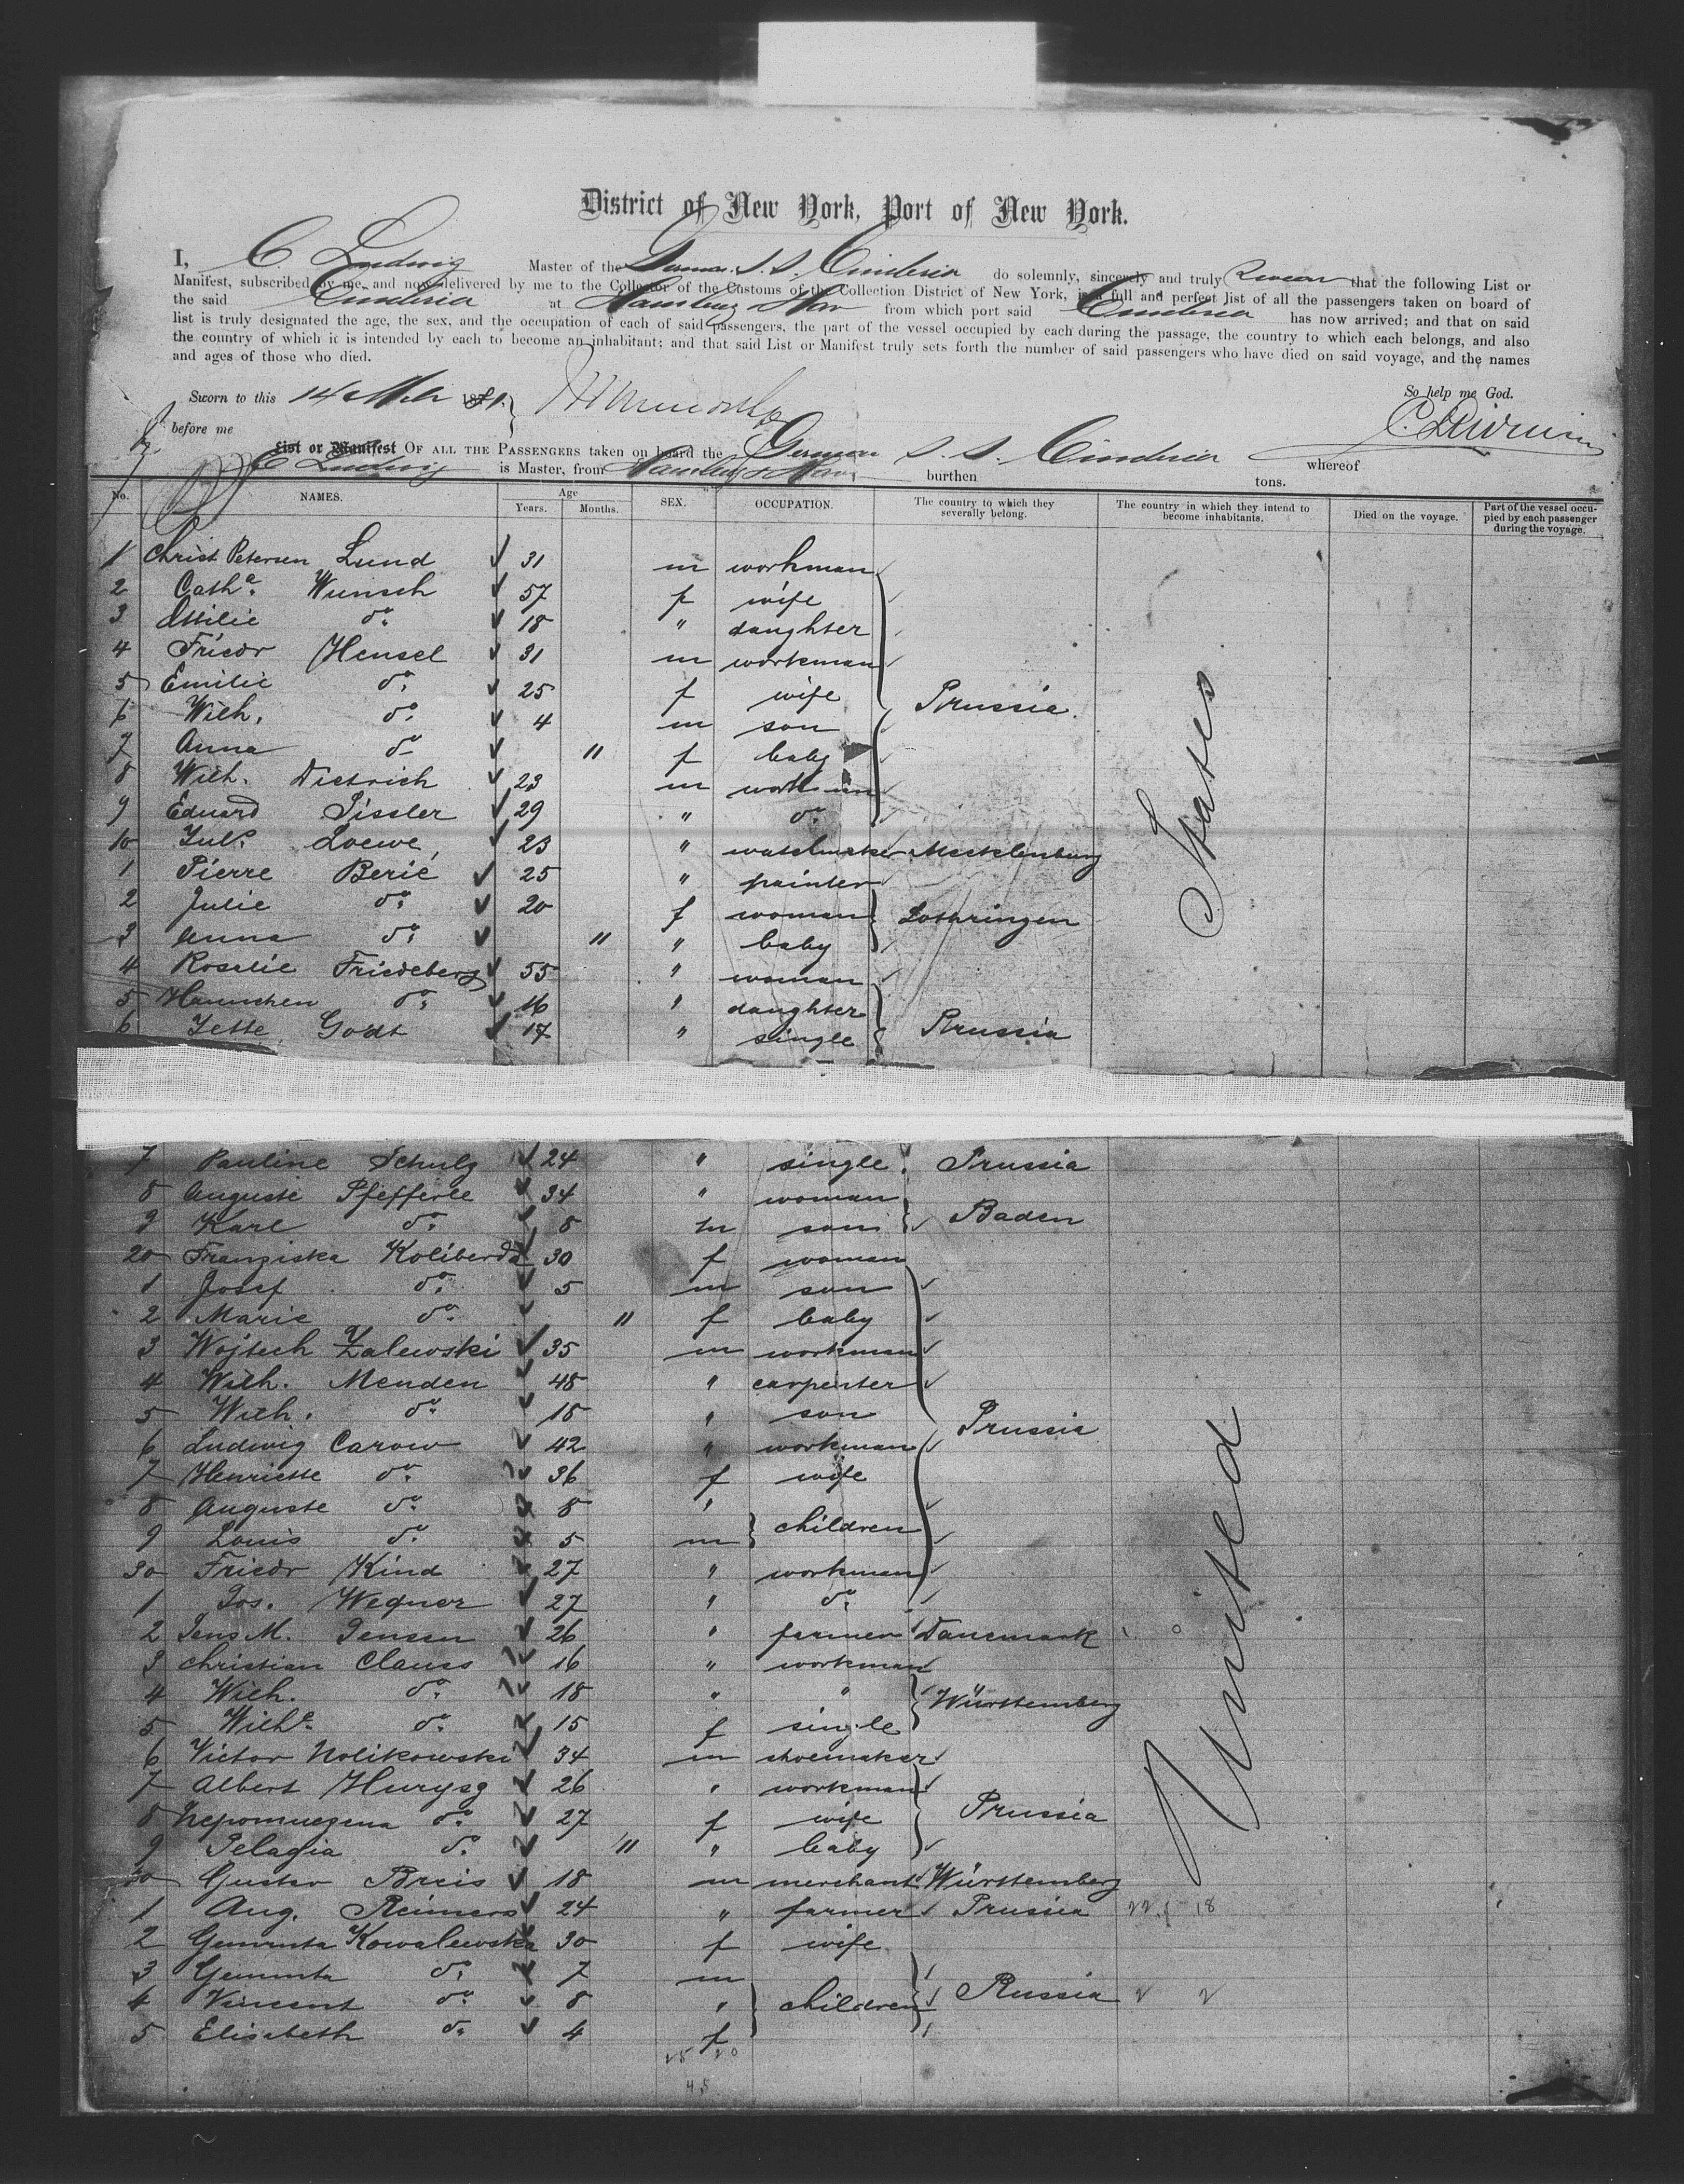 District of New York, Port of New York.
I, C. Ludwig Master of the German S. S. Cimbria do solemnly, sincerely and truly swear that the following List or
Manifest, subscribed by me, and now delivered by me to the Collector of the Customs of the Collection District of New York, is a full and perfect list of all the passengers taken on board of
the said Cimbria at Hamburg & Hav from which port said Cimbria has now arrived; and that on said
list is truly designated the age, the sex, and the occupation of each of said passengers, the part of the vessel occupied by each during the passage, the country to which each belongs, and also
the country of which it is intended by each to become an inhabitant; and that said List or Manifest truly sets forth the number of said passengers who have died on said voyage, and the names
and ages of those who died.
So help me God.
Sworn to this 14 1881.
before me
C. Ludwig
List or Manifest OF ALL THE PASSENGERS taken on board the German S. S. Cimbria whereof
C Ludwig is Master, from Hamburg & Hav. burthen tons.
No. NAMES. Age Years. Months. SEX. OCCUPATION. The country to which they severally belong. The country in which they intend to become inhabitants. Died on the voyage. Part of the vessel occupied by each passenger during the voyage.
1 Christ Petersen Lund 31 m workman
2 Cath.a Wunsch 57 f wife
3 Ottilie do. 18 " daughter
4 Friedr Hensel 31 m workman
5 Emilie do. 25 f wife Prussia.
6 Wilh. do. 4 m son
7 Anna do 11 f baby
8 Wilh. Dietrich 23 m workman
9 Eduard Pissler 29 " do.
10 Juls. Loewe 23 " watchmaker Mecklenburg
1 Pierre Berié 25 " painter
2 Julie do. 20 f woman Lothringen
3 Anna do. 11 " baby
4 Rosalie Friedeberg 55 " woman
5 Hannchen do. 16 " daughter
6 Jette Godt 17 " single Prussia
7 Pauline Schulz 24 " single Prussia
8 Auguste Pfefferle 34 " woman
9 Karl do. 8 m son Baden
20 Franziska Koliberda 30 f woman
1 Josef do. 5 m son
2 Marie do. 11 f baby
3 Wojtech Zalewski 35 m workman
4 Wilh. Menden 48 " carpenter
5 Wilh. do. 18 " son Prussia
6 Ludwig Carow 42 " workman
7 Henriette do. 36 f wife
8 Auguste do. 8 " children
9 Louis do. 5 m
30 Friedr Kind 27 " workman
1 Jos. Wegner 27 " do.
2 Jens M. Jensen 26 " farmer Danemark
3 Christian Clauss 16 " workman
4 Wilh. do. 18 " " Württemberg
5 Wilhe. do. 15 f single
6 Victor Nolikowski 34 m shoemaker
7 Albert Hurysz 26 " workman
8 Nepomuezena do. 27 f wife Prussia
9 Pelagia do. 11 " baby
Gustav Breis 18 m merchant Württemberg
1 Aug. Reimers 24 " farmer Prussia
2 Kowalewska 30 f wife
3 do. 7 m
4 Vincent do. 8 " children Russia
5 Elisabeth do. 4 f
25 20
45
United States